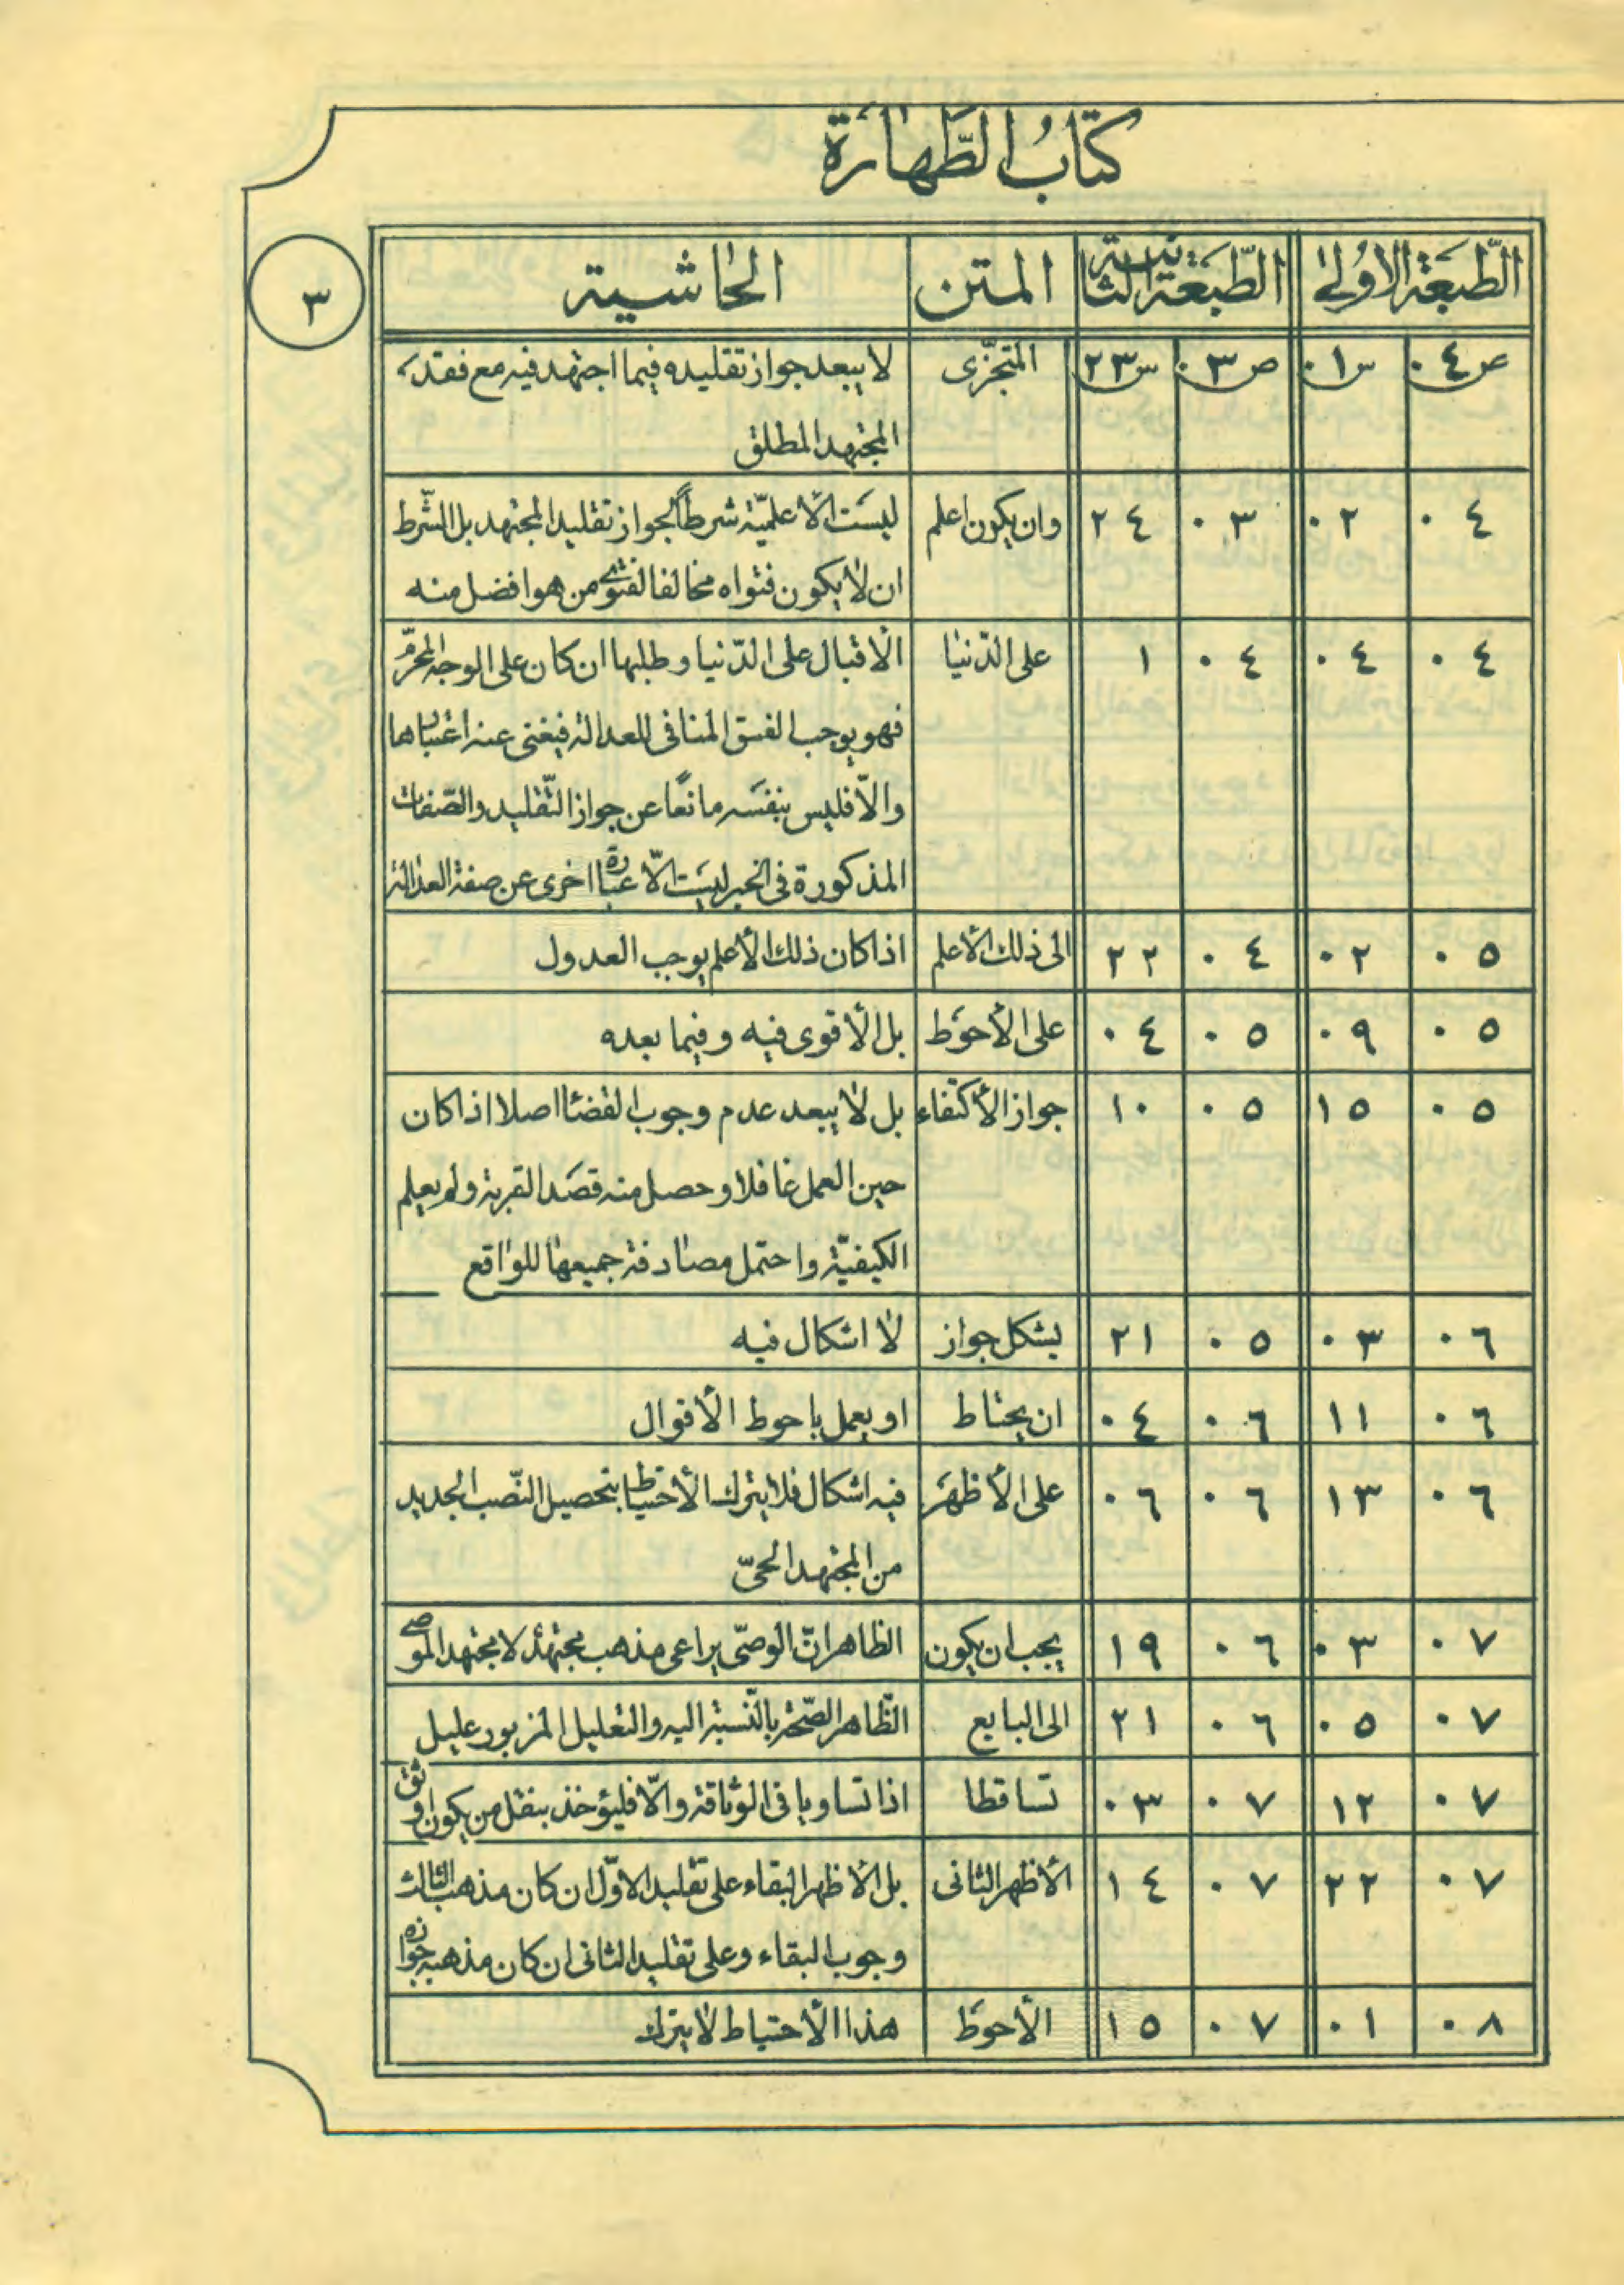 كتاب الطّهارة
الطّبعة الاولىٰ الطّبعة الثانية المتن الحاشية
٣
ص ٠٤ س ٠١ ص ٠٣ س ٢٣ المتجزّى لا يبعد جواز تقليده فيما اجتهد فيه مع فقد
المجتهد المطلق
٠٤ ٠٢ ٠٣ ٢٤ وان يكون اعلم ليست الأعلميّة شرطاً لجواز تقليد المجتهد بل الشّرط
ان لا يكون فتواه مخالفا لفتوى من هو افضل منه
٠٤ ٠٤ ٠٤ ١ على الدّنيا الاقبال على الدّنيا و طلبها ان كان على الوجه المحرّم
فهو يوجب الفسق المنافى للعدالة فيغنى عنه اعتبارها
والاّ فليس بنفسه مانعًا عن جواز التّقليد والصّفات
المذكورة فى الخبر ليست الّا عبارة اخرى عن صفة العدالة
٠٥ ٠٢ ٠٤ ٢٢ الى ذلك الأعلم اذا كان ذلك الأعلم يوجب العدول
٠٥ ٠٩ ٠٥ ٠٤ على الأحوَط بل الأقوى فيه و فيما بعده
٠٥ ١٥ ٠٥ ١٠ جواز الأكتفاء بل لا يبعد عدم وجوب القضا اصلا اذا كان
حين العمل غافلا و حصل منه قصد القربة ولم يعلم
الكيفيّة واحتمل مصادفة جميعها للواقع
٠٦ ٠٣ ٠٥ ٢١ يشكل جواز لا اشكال فيه
٠٦ ١١ ٠٦ ٠٤ ان يحتاط او يعمل باحوط الأقوال
٠٦ ١٣ ٠٦ ٠٦ على الأظهَر فيه اشكال فلا يترك الأحتياط بتحصيل النّصب الجديد
من المجتهد الحىّ
٠٧ ٠٣ ٠٦ ١٩ يجب ان يكون الظاهر انّ الوصّى يراعى مذهب مجتهده لا مجتهد الموصى
٠٧ ٠٥ ٠٦ ٢١ الى البايع الظّاهر الصّحة بالنّسبة اليه والتعليل المزبور عليل
٠٧ ١٢ ٠٧ ٠٣ تساقطا اذا تساويا فى الوثاقة والّا فليؤخذ بنقل من يكون اوثق
٠٧ ٢٢ ٠٧ ١٤ الأظهر الثانى بل الأظهر البقاء على تقليد الاوّل ان كان مذهب الثالث
وجوب البقاء وعلى تقليد الثانى ان كان مذهبه جوازه
٠٨ ٠١ ٠٧ ١٥ الأحوَط هذا الأحتياط لا يترك